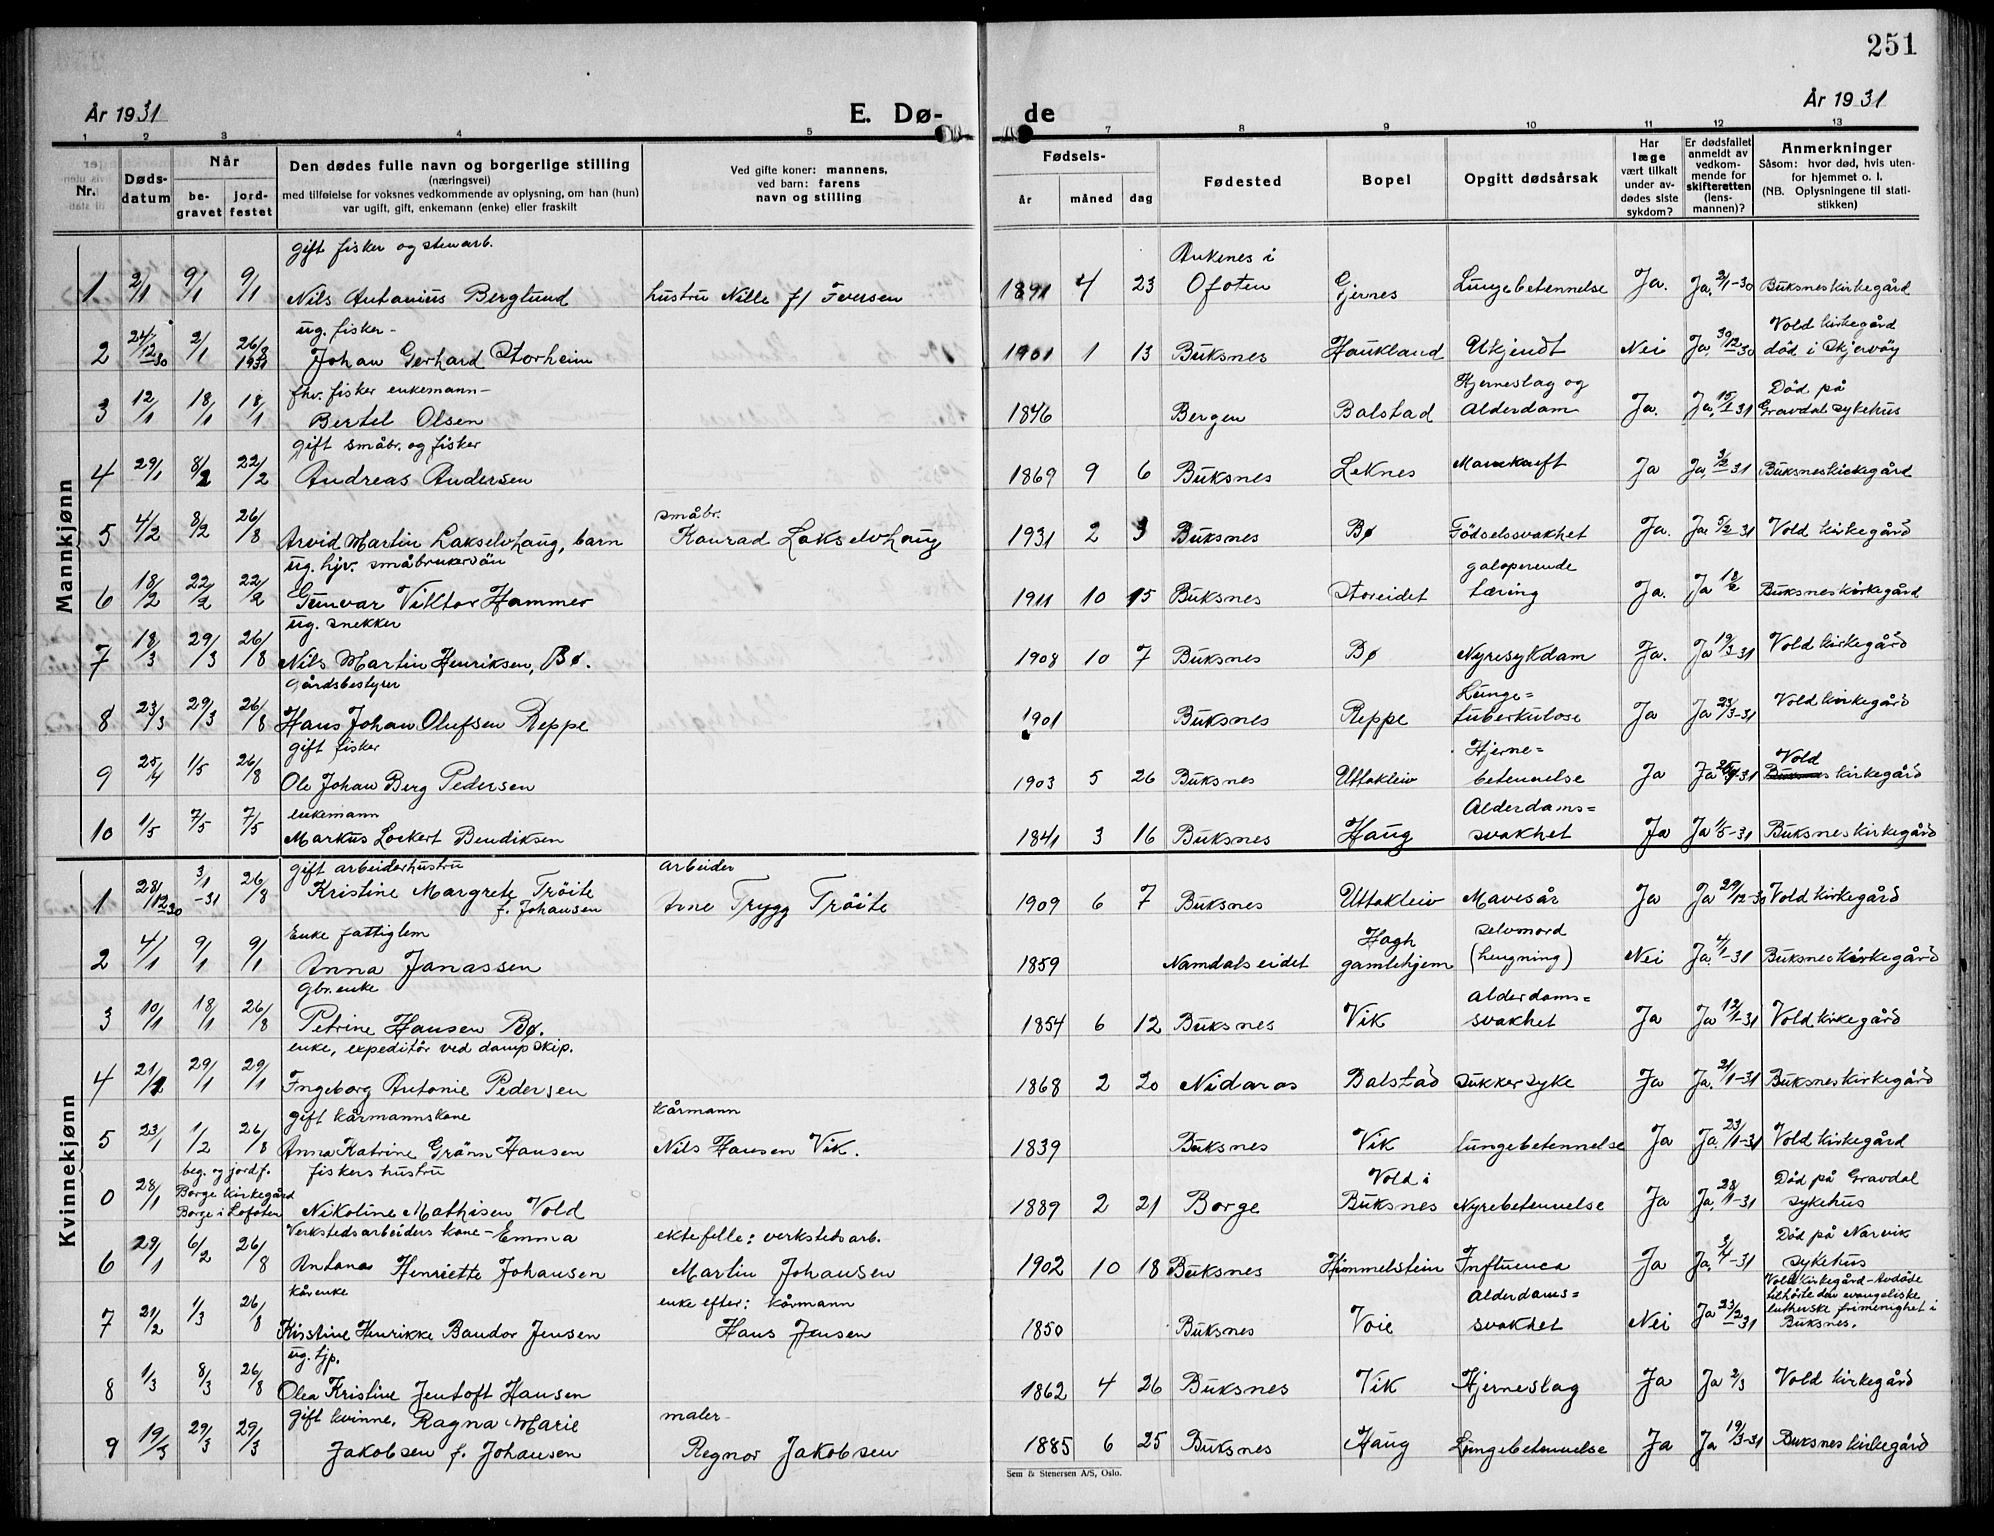 251
År 1931
E. Dø-
de
År 1931
1 2 3 4 5 7 8 9 10 11 12 13
Nr.
Døds-
datum
Når
be-
gravet
jord-
festet
Den dødes fulle navn og borgerlige stilling
(næringsvei)
med tilføielse for voksnes vedkommende av oplysning, om han (hun)
var ugift, gift, enkemann (enke) eller fraskilt
Ved gifte koner: mannens,
ved barn: farens
navn og stilling
Fødsels-
år måned dag
Fødested
Bopel
Opgitt dødsårsak
Har
læge
vært tilkalt
under av-
dødes siste
sykdom?
Er dødsfallet
anmeldt av
vedkom-
mende for
skifteretten
(lens-
mannen)?
Anmerkninger
Såsom: hvor død, hvis uten-
for hjemmet o. l.
(NB. Oplysningene til stati-
stikken)
Mannkjønn
gift fisker og stenarb. Ankenes i
1 2/1 9/1 9/1 Nils Antonius Berglund hustru Nille f/ Iversen 1891 4 23 Ofoten Gjernes Lungebetennelse Ja. Ja, 2/1-30 Buksnes kirkegård
ug. fisker- Vold kirkegård
2 24/12 30 2/1 26/8 1931 Johan Gerhard Storheim 1901 1 13 Buksnes Haukland Ukjendt Nei Ja 30/12 30 död i Skjervöy
fhv. fisker enkemann- Hjerneslag og Död på
3 12/1 18/1 18/1 Bertel Olsen 1846 Bergen Balstad Alderdom Ja. Ja, 15/1-31 Gravdal sykehus
gift småbr. og fisker
4 29/1 8/2 22/2 Andreas Andersen 1869 9 6 Buksnes Leknes Mavekreft Ja Ja, 3/2-31 Buksnes kirkegård
småbr.
5 4/2 8/2 26/8 Arvid Martin Lakselvhaug, barn Konrad Lakselvhaug 1931 2 3 Buksnes Bø Födselssvakhet Ja. Ja, 5/2-31 Vold kirkegård
ug. hjv. småbrukersön galoperende
6 18/2 22/2 22/2 Gunvar Viktor Hammer 1911 10 15 Buksnes Storeidet tæring Ja. Ja 12/2 Buksnes kirkegård
ug. snekker
7 18/3 29/3 26/8 Nils Martin Henriksen, Bø. 1908 10 7 Buksnes Bø Nyresykdam Ja. Ja 19/3-31 Vold kirkegård
Gårdsbestyrer Lunge=
8 23/3 29/3 26/8 Hans Johan Olufsen Reppe 1901 Buksnes Reppe tuberkulose Ja Ja 23/3-31 Vold kirkegård
gift fisker Hjerne= Vold
9 25/4 1/5 26/8 Ole Johan Berg Pedersen 1903 5 26 Buksnes Uttakleiv betennelse Ja Ja -31 Buksnes kirkegård
enkemann Alderdoms=
10 1/5 7/5 7/5 Markus Lockert Bendiksen 1841 3 16 Buksnes Haug svakhet Ja Ja 1/5-31 Buksnes kirkegård
Kvinnekjønn
gift arbeiderhustru arbeider
1 28/12 30 3/1-31 26/8 Kristine Margrete Tröite f. Johansen Arne Trygg Tröite 1909 6 7 Buksnes Uttakleiv Mavesår Ja Ja 29/12-30 Vold kirkegård
Enke fattiglem Hagh selvmord
2 4/1 9/1 9/1 Anna Janassen 1859 Namdalseidet gamlehjem (hengning) Nei Ja, 4/1-31 Buksnes kirkegård
gbr. enke Alderdoms=
3 10/1 18/1 26/8 Petrine Hansen Bø. 1854 6 12 Buksnes Vik svakhet Ja Ja 12/1-31 Vold kirkegård
enke, expeditör ved dampskip.
4 21/1 29/1 29/1 Ingeborg Antonie Pedersen 1868 2 20 Nidaros Balstad sukkersyke Ja Ja, 21/1-31 Buksnes kirkegård
gift kårmannskone kårmann
5 23/1 1/2 26/8 Anna Katrine Grönn Hansen Nils Hansen Vik. 1839 Buksnes Vik lungebetennelse Ja Ja, 23/1-31 Vold kirkegård
beg. og jordf. fiskers hustru Vold i Död på Gravdal
0 28/1 Borge kirkegård Borge i Lofoten Nikoline Mathisen Vold 1889 2 21 Borge Buksnes Nyrebetennelse Ja Ja, 28/1-31 sykehus
Verkstedsarbeiders kone - Emma ektefelle: verkstedsarb. Död på Narvik
6 29/1 6/2 26/8 Antona Henriette Johansen Martin Johansen 1902 10 18 Buksnes Himmelstein Influenca Ja Ja, 3/4-31 sykehus
kårenke enke efter: kårmann Alderdoms= Vold kirkegård - Avdöde
tilhörte den evangeliske
7 21/2 1/3 26/8 Kristine Henrikke Baudor Jensen Hans Jensen 1850 Buksnes Voie svakhet Nei Ja 23/2 31 lutherske frimenighet i
Buksnes.
ug. tjp.
8 1/3 8/3 26/8 Olea Kristine Jentoft Hansen 1862 4 26 Buksnes Vik Hjerneslag Ja Ja 2/3 Vold kirkegård
gift kvinne, Ragna Marie maler-
9 19/3 29/3 29/3 Jakobsen f. Johansen Regnor Jakobsen 1885 6 25 Buksnes Haug Lungebetennelse Ja Ja 19/3-31 Buksnes kirkegård
Sem & Stenersen A/S, Oslo.